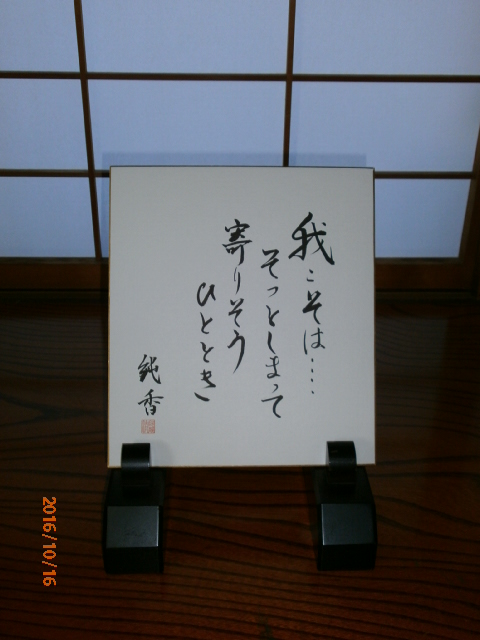 我こそは‥‥
そっとしまって
寄りそう
ひととき
純香
2016/10/16